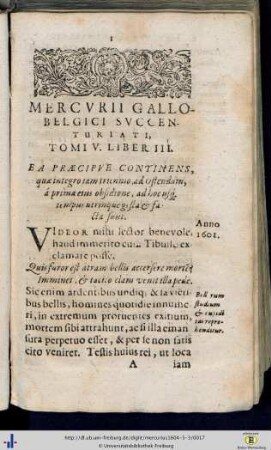 1
MERCVRII GALLO-
BELGICI SVCCEN-
TVRIATI,
TOMI V. LIBER III.
EA PRÆCIPVE CONTINENS,
quæ integro iam triennio, ad Ostendam,
à prima eius obsidione, ad hoc usq;
tempus utrinque gesta & fa-
cta sunt.
Anno
1601.
VIDEOR mihi lector benevole,
haud immerito cum Tibullo ex-
clamare posse.
Quis furor est atram bellis accersere mortẽ?
Imminet, & tacito clam venit illa pede.
Sic enim ardentibus undiq; & sævien-
tibus bellis, homines quotidie innume-
ri, in extremum proruentes exitium,
mortem sibi attrahunt, ac si illa eman-
sura perpetuo esset, & per se non satis
cito veniret. Testis huius rei, ut loca
Bell rum
studium
& cupidi
tas repre-
henditur.
A iam
http://dl.ub.uni-freiburg.de/diglit/mercurius1604-5-3/0017
© Universitätsbibliothek Freiburg